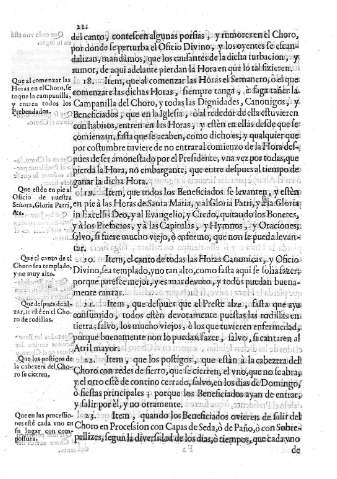 del canto, contescen algunas porfias, y rumores en el Choro,
por donde se perturba el Oficio Divino, y los oyentes se escandalizan,
mandamos, que los causantes de la dicha turbacion, y
rumor, de aqui adelante pierdan la Hora en que lo tal fizieren.
Que al comenzar las
Horas en el Choro, se
toque la campanilla,
y entren todos los
Prebendados.
18. Item, que al comenzar las Horas el Semanero, ò el que
comenzare las dichas Horas, siempre tanga, ò faga tañer la
Campanilla del Choro, y todas las Dignidades, Canonigos, y
Beneficiados, que en la Iglesia, ò al rededor de ella estuvieren
con habitos, entren en las Horas, y estèn en ellas desde que se
comienzan, fasta que se acaben, como dicho es; y qualquier que
por costumbre tuviere de no entrar al comienzo de la Hora despues
de ser amonestado por el Presidente, una vez por todas, que
pierda la Hora, no embargante, que entre despues al tiempo de
ganar la dicha Hora.
Que estèn en pie al
Oficio de nuestra
Señora, Gloria Patri,
19. Item, que todos los Beneficiados se levanten, y estèn
en pie à las Horas de Santa Maria, y al Gloria Patri, y à la Gloria
in excelsis Deo, y al Evangelio, y Credo, quitando los Bonetes,
y à los Prefacios, y à las Capitulas, y Hymnos, y Oraciones,
salvo, si fuese mucho viejo, ò enfermo, que non se pueda levantar.
Que el canto de el
Choro sea templado,
y no muy alto.
20. Item, el canto de todas las Horas Canonicas, y Oficio
Divino, sea templado, y no tan alto, como fasta aqui se solia fazer,
porque paresce mejor, y es mas devoto, y todos puedan buenamente
cantar.
Que despues de alzar,
se estèn en el Choro
de rodillas.
21. Item, que despues que el Preste alze, fasta que aya
consumido, todos estèn devotamente puestas las rodillas en
tierra; salvo, los mucho viejos, ò los que tuvieren enfermedad,
porque buenamente non lo puedan fazer, salvo, si cantaren al
Atril mayor.
Que los postigos de
la cabezera del Choro
se cierren.
22. Item, que los postigos, que estàn à la cabezera del
Choro con redes de fierro, que se cierren, el uno, que no se abra,
y el otro estè de contino cerrado, salvo, en los dias de Domingo,
ò fiestas principales; porque los Beneficiados ayan de entrar,
y salir por èl, y no otramente.
Que en las processiones
estè cada uno en
su lugar con compostura.
23. Item, quando los Beneficiados ovieren de salir del
Choro en Procession con Capas de Seda, ò de Paño, ò con Sobrepellizes,
segun la diversidad de los dias, ò tiempos, que cada uno
de